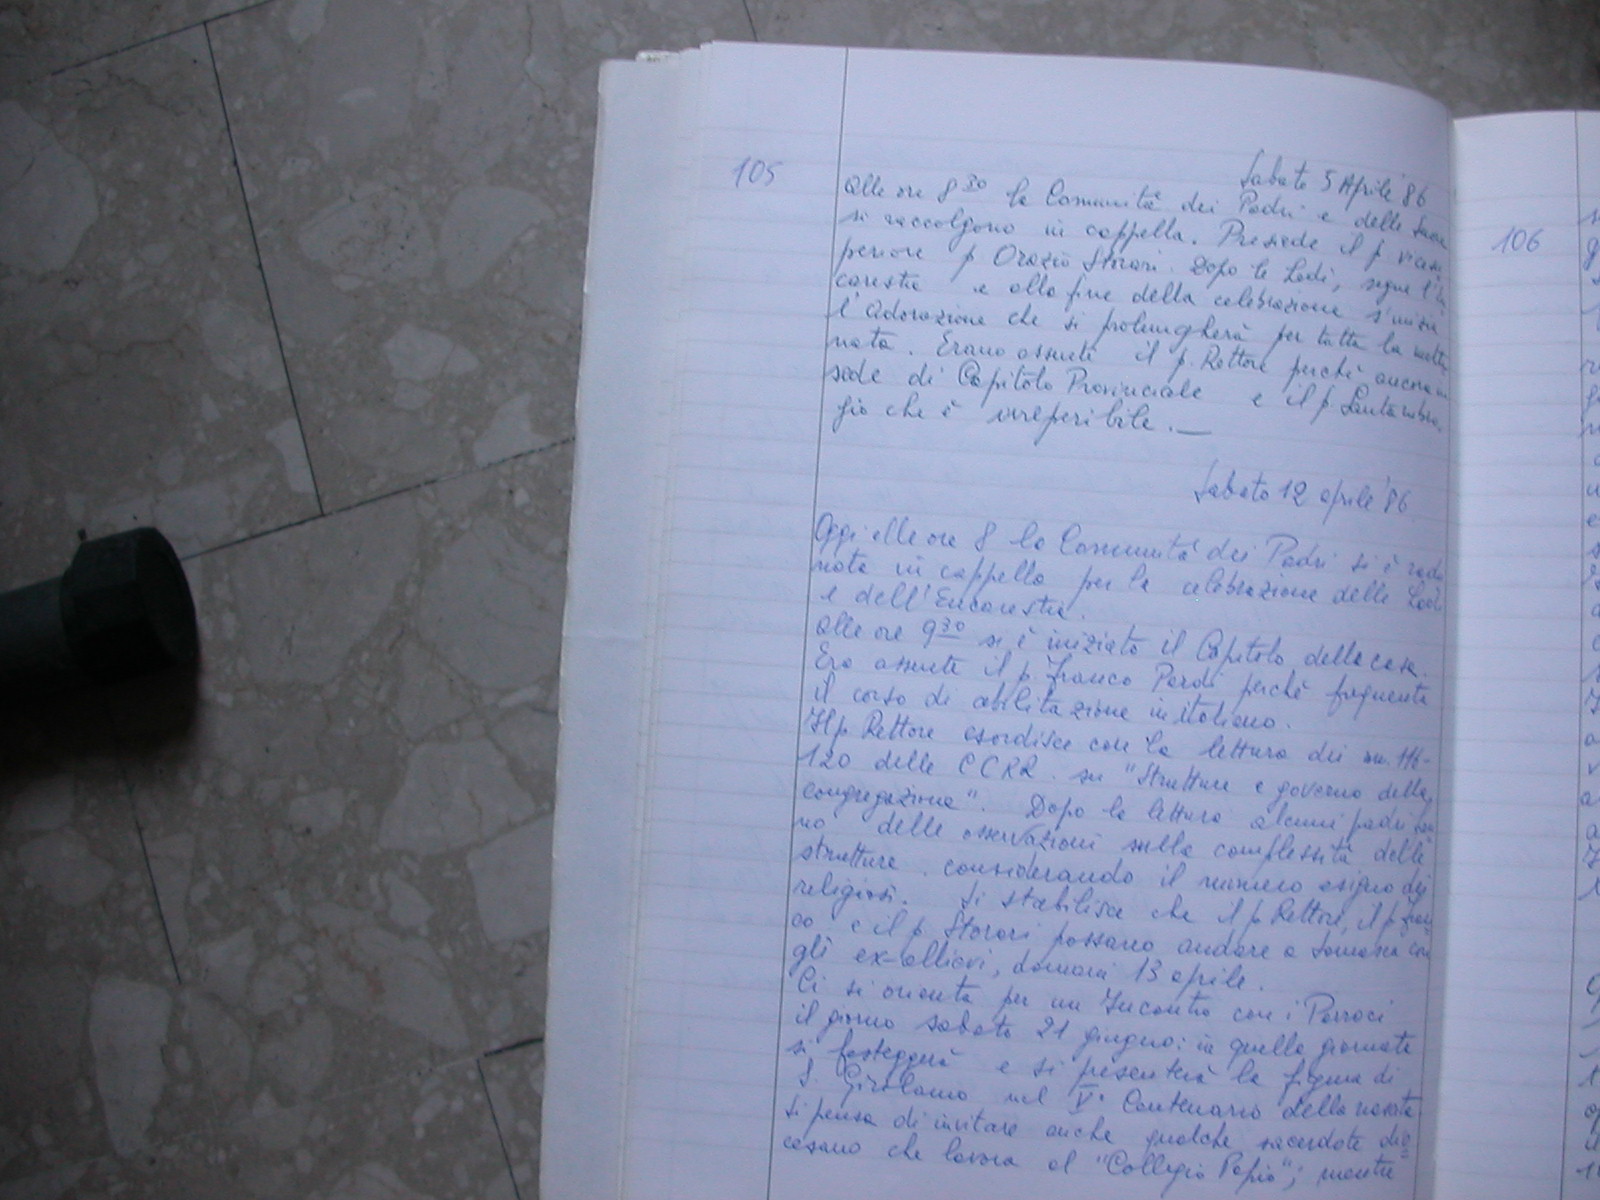 105
Sabato 5 Aprile '86
Alle ore 8 30 la Comunità dei Padri e delle Suore
si raccolgono in cappella. Presiede il p vicesu
periore p Orazio Storari. Dopo le Lodi, segue l'Eu
carestia e alla fine della celebrazione s'inizia
l'Adorazione che si prolungherà per tutta la matti
nata. Erano assenti il p. Rettore perchè ancora in
sede di Capitolo Provinciale e il p. Santambro
gio che è irreperibile.—
Sabato 12 aprile '86
Oggi alle ore 8 la Comunità dei Padri si è radu
nata in cappella per la celebrazione delle Lodi
e dell'Eucarestia.
Alle ore 9 30 si è iniziato il Capitolo della casa.
Era assente il p. Franco perchè frequenta
il corso di abilitazione in italiano.
Il p. Rettore esordisce con la lettura dei nn. 116-
120 delle CCRR. su "Strutture e governo della
congregazione". Dopo la lettura alcuni padri fan
no delle osservazioni sulla complessità delle
strutture considerando il numero esiguo dei
religiosi. Si stabilisce che il p Rettore, il p Fran
co e il p Storari possano andare a Somasca con
gli ex-allievi, domani 13 aprile.
Ci si orienta per un Incontro con i Parroci
il giorno sabato 21 giugno: in quella giornata
si festeggerà e si presenterà la figura di
S. Girolamo nel V° Centenario della nascita
Si pensa di invitare anche qualche sacerdote dio
cesano che lavora al "Collegio Papio"; mentre
106